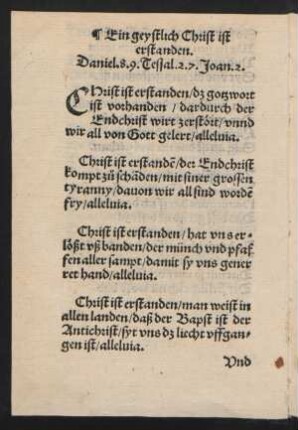 ¶ Ein geystlich Christ ist
erstanden.
Daniel.8.9. Tessal.2.7. Joan.2.
Christ ist erstanden/dz gotzwort
ist vorhanden / dardurch der
Endchrist wirt zerstöret/vnnd
wir all von Gott gelert/alleluia.
Christ ist erstandē/der Endchrist
kompt zů schāden/mit siner grossen
tyranny/dauon wir all sind wordē
fry/alleluia.
Christ ist erstanden/hat vns er-
lößt vß banden/der münch vnd pfaf
fen aller sampt/damit sy vns gener
ret hand/alleluia.
Christ ist erstanden/man weist in
allen landen/daß der Bapst ist der
Antichrist/syt vns dz liecht vffgan-
gen ist/alleluia.
Vnd